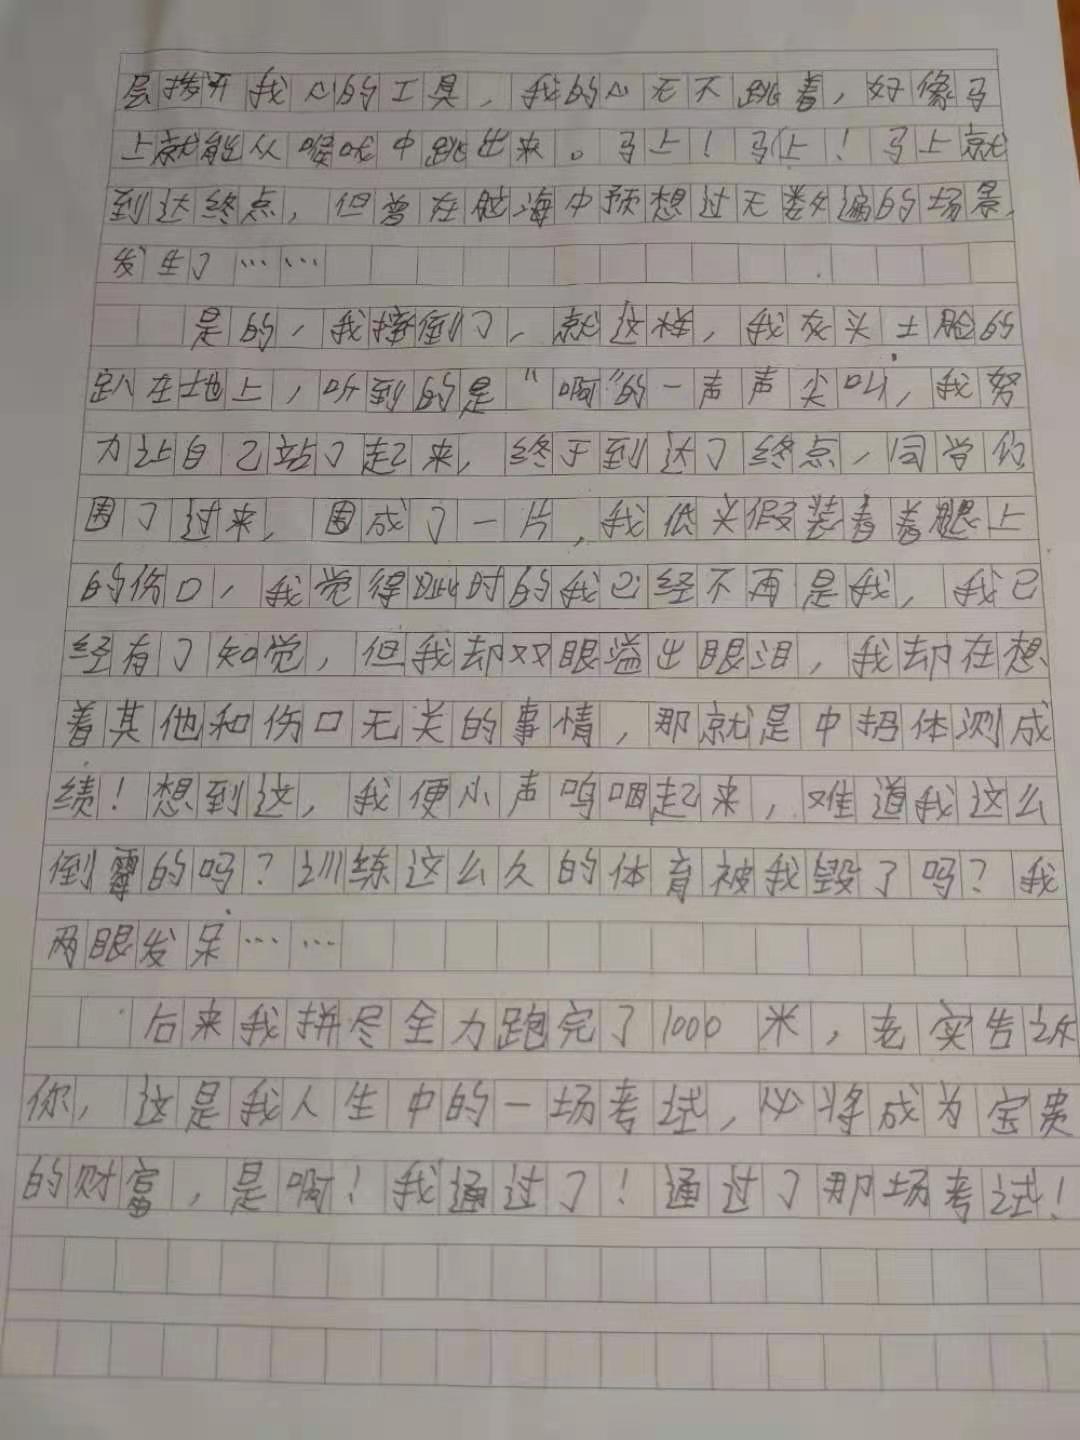 层拨开我心的工具，我的心无不跳着，好像马
上就能从喉咙中跳出来。马上！马上！马上就
到达终点，但曾在脑海中预想过无数遍的场景，
发生了……
是的，我摔倒了，就这样，我灰头土脸的
趴在地上，听到的是“啊”的一声声尖叫，我努
力让自己站了起来，终于到达了终点，同学们
围了过来，围成了一片，我低头假装看着腿上
的伤口，我觉得此时的我已经不再是我，我已
经有了知觉，但我却双眼溢出眼泪，我却在想
着其他和伤口无关的事情，那就是中招体测成
绩！想到这，我便小声呜咽起来，难道我这么
倒霉的吗？训练这么久的体育被我毁了吗？我
两眼发呆……
后来我拼尽全力跑完了1000米，老实告诉
你，这是我人生中的一场考试，必将成为宝贵
的财富，是啊！我通过了！通过了那场考试！